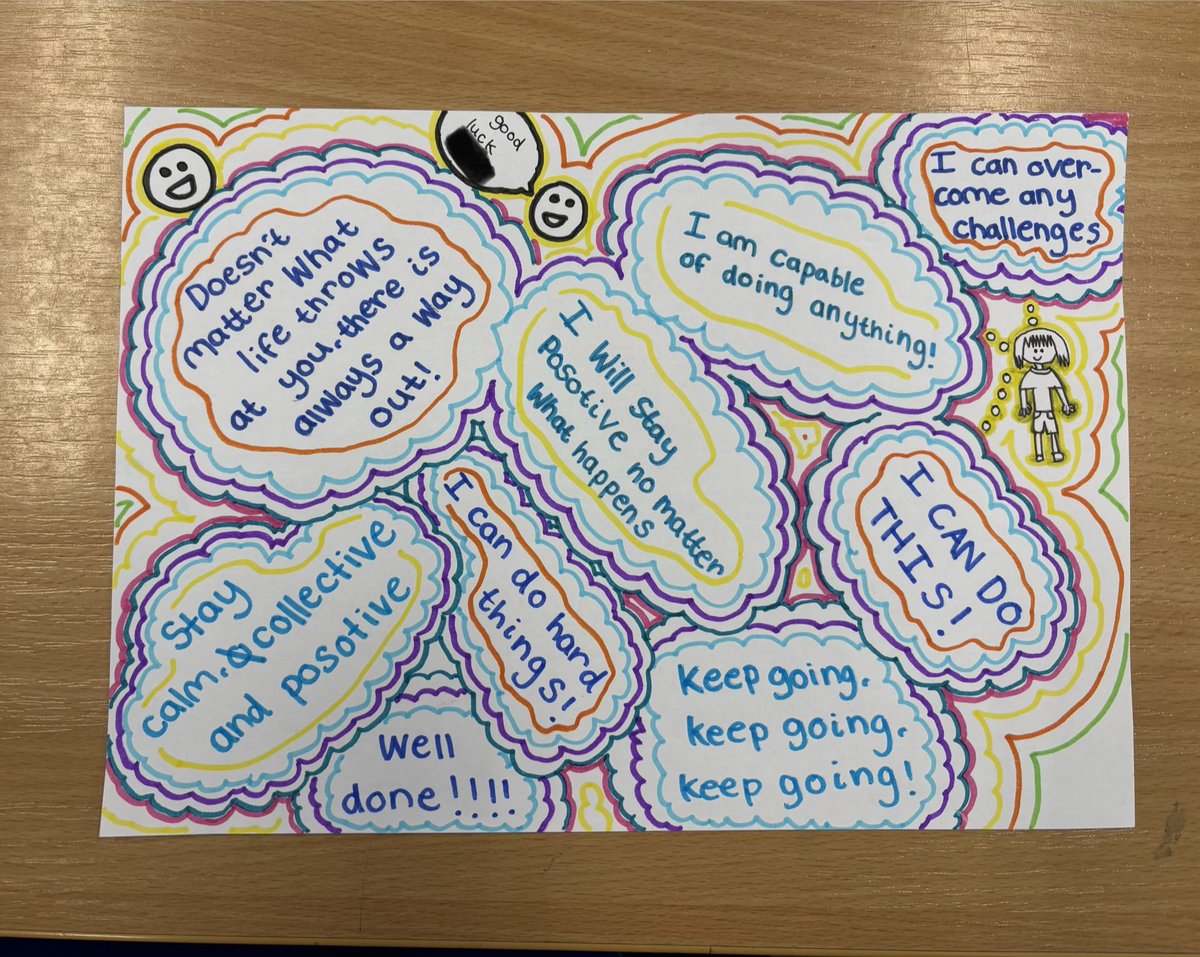 good
luck
I can over-
come any
challenges
Doesn't
matter What
life throws
at you. there is
always a way
out!
I am capable
of doing anything!
I Will Stay
Posotive no matter
What happens
I CAN DO
THIS!
Stay
calm. collective
and posotive
I can do hard
things!
Well
done!!!!
Keep going.
keep going.
keep going!